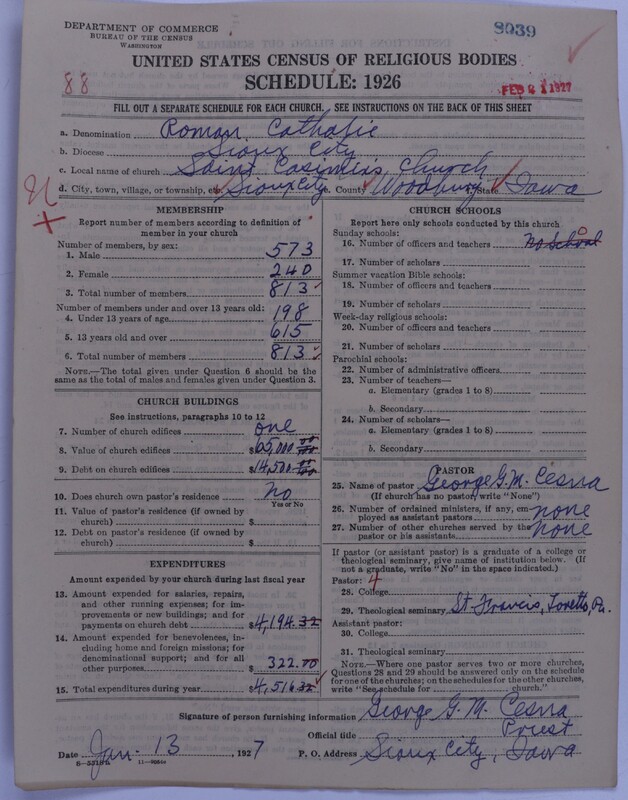 DEPARTMENT OF COMMERCE
BUREAU OF THE CENSUS
WASHINGTON
8039
UNITED STATES CENSUS OF RELIGIOUS BODIES
SCHEDULE: 1926
88
FEB 1927
FILL OUT A SEPARATE SCHEDULE FOR EACH CHURCH. SEE INSTRUCTIONS ON THE BACK OF THIS SHEET
a. Denomination Roman Catholic
b. Diocese Sioux City
c. Local name of church Saint Casimir's Church
d. City, town, village, or township, etc. Sioux City e. County Woodbury f. State Iowa
MEMBERSHIP
Report number of members according to definition of
member in your church
Number of members, by sex:
1. Male 573
2. Female 240
3. Total number of members 813
Number of members under and over 13 years old:
4. Under 13 years of age 198
5. 13 years old and over 615
6. Total number of members 813
NOTE.—The total given under Question 6 should be
the same as the total of males and females given under Question 3.
CHURCH BUILDINGS
See instructions, paragraphs 10 to 12
7. Number of church edifices one
8. Value of church edifices $65,000.00
9. Debt on church edifices $14,500.00
10. Does church own pastor's residence No
Yes or No
11. Value of pastor's residence (if owned by
church) $
12. Debt on pastor's residence (if owned by
church) $
EXPENDITURES
Amount expended by your church during last fiscal year
13. Amount expended for salaries, repairs,
and other running expenses; for im-
provements or new buildings; and for
payments on church debt $4,194.32
14. Amount expended for benevolences, in-
cluding home and foreign missions; for
denominational support; and for all
other purposes $322.00
15. Total expenditures during year $4,516.32
CHURCH SCHOOLS
Report here only schools conducted by this church
Sunday schools:
16. Number of officers and teachers No School 0
17. Number of scholars
Summer vacation Bible schools:
18. Number of officers and teachers
19. Number of scholars
Week-day religious schools:
20. Number of officers and teachers
21. Number of scholars
Parochial schools:
22. Number of administrative officers
23. Number of teachers—
a. Elementary (grades 1 to 8)
b. Secondary
24. Number of scholars—
a. Elementary (grades 1 to 8)
b. Secondary
PASTOR
25. Name of pastor George G. M. Cesna
(If church has no pastor, write "None")
26. Number of ordained ministers, if any, em-
ployed as assistant pastors none
27. Number of other churches served by the
pastor or his assistants none
If pastor (or assistant pastor) is a graduate of a college or
theological seminary, give name of institution below. (If
not a graduate, write "No" in the space indicated.)
Pastor: 4
28. College
29. Theological seminary St Francis, Loretto, Pa.
Assistant pastor:
30. College
31. Theological seminary
NOTE.—Where one pastor serves two or more churches,
Questions 28 and 29 should be answered only on the schedule
for one of the churches; on the schedules for the other churches,
write "See schedule for church."
Signature of person furnishing information George G. M. Cesna
Official title Priest
Date Jan. 13 1927 P. O. Address Sioux City, Iowa